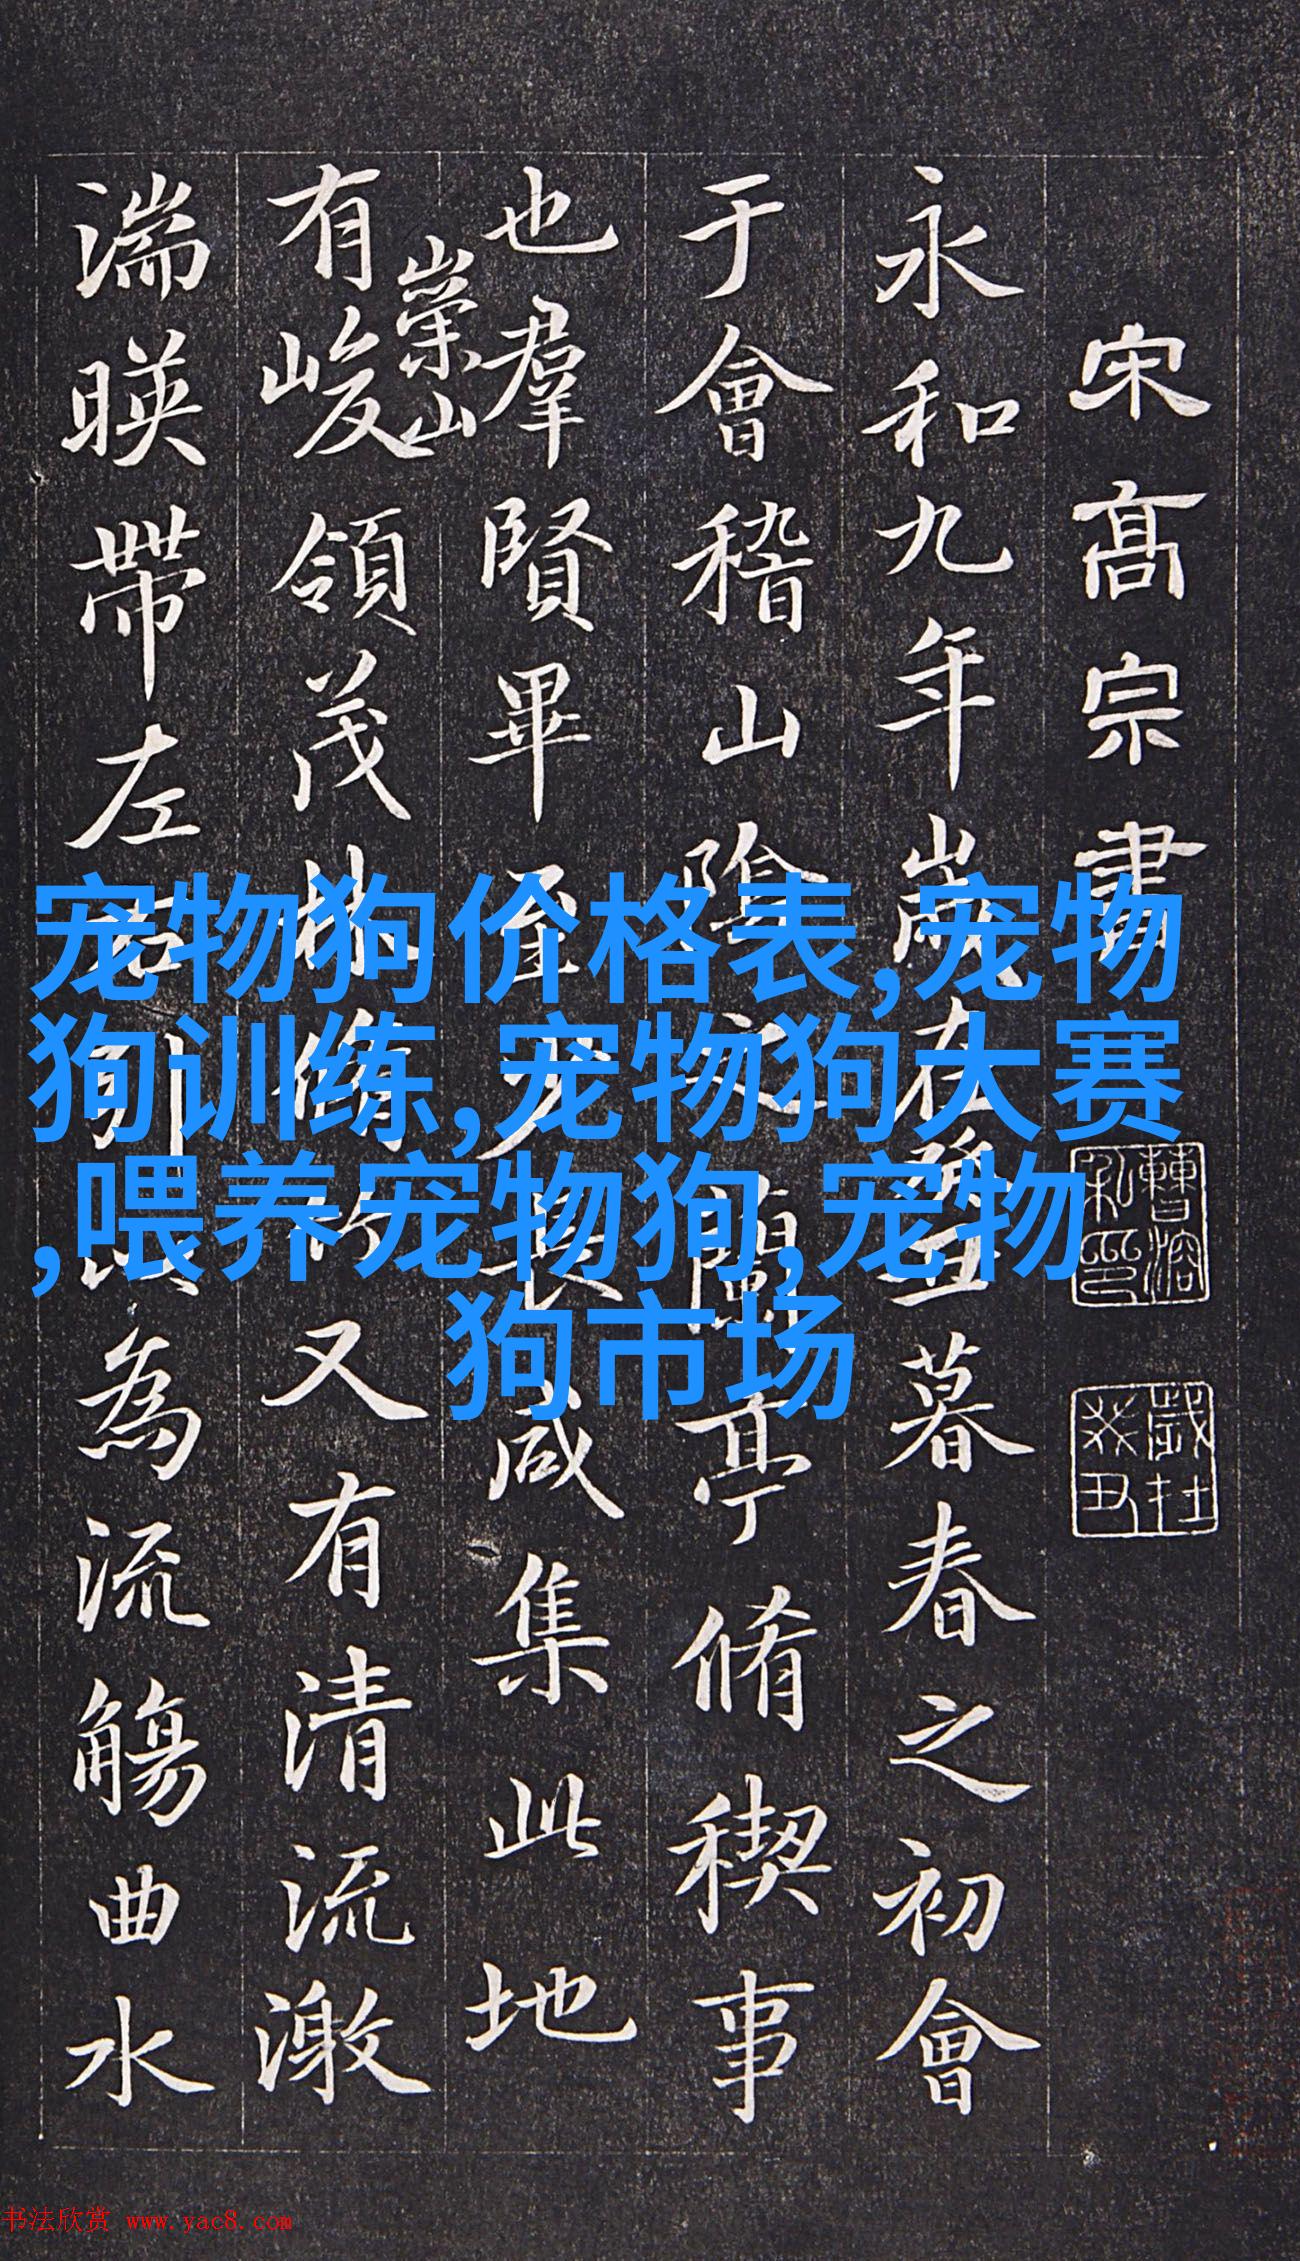 宋高宗書
永和九年歲在癸丑暮春之初會
于會稽山陰之蘭亭脩禊事
也羣賢畢至少長咸集此地
有崇山峻領茂林脩竹又有清流激
湍暎帶左右引以為流觴曲水
歲在癸丑
宠物狗价格表,宠物
狗训练,宠物狗大赛
,喂养宠物狗,宠物
狗市场
书法欣赏 www.yac8.com